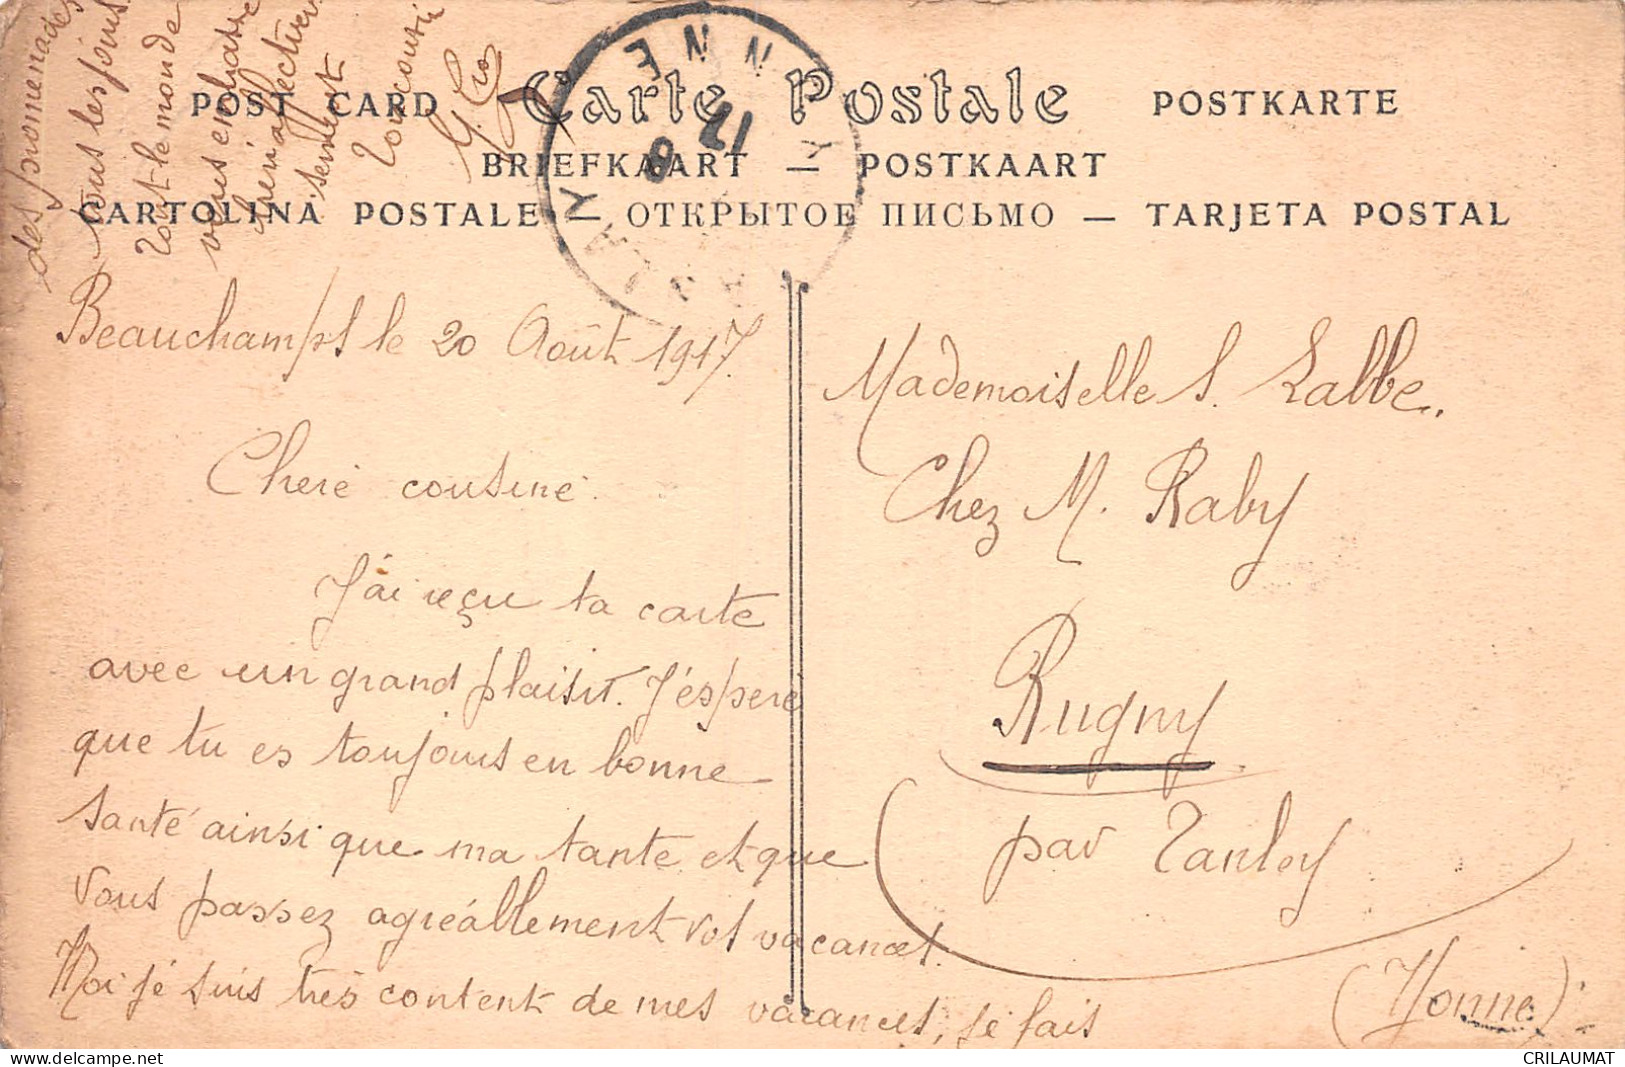 POST CARD Carte Postale POSTKARTE
BRIEFKAART — POSTKAART
CARTOLINA POSTALE — ОТКРЫТОЕ ПИСЬМО — TARJETA POSTAL
YONNE
17
8
Beauchamps le 20 Août 1917.
Chère cousine.
J'ai reçu ta carte
avec un grand plaisir. J'éspère
que tu es toujours en bonne
santé ainsi que ma tante et que
vous passez agréàblement vos vacances.
Moi je suis très content de mes vacances, je fais
des promenades
tous les jours.
Tout le monde
vous embrasse
bien affectueu
sement
Ton cousin
Mademoiselle S. Labbe.
Chez M. Raby
Rugny
par Tanlay
(Yonne)
CRILAUMAT